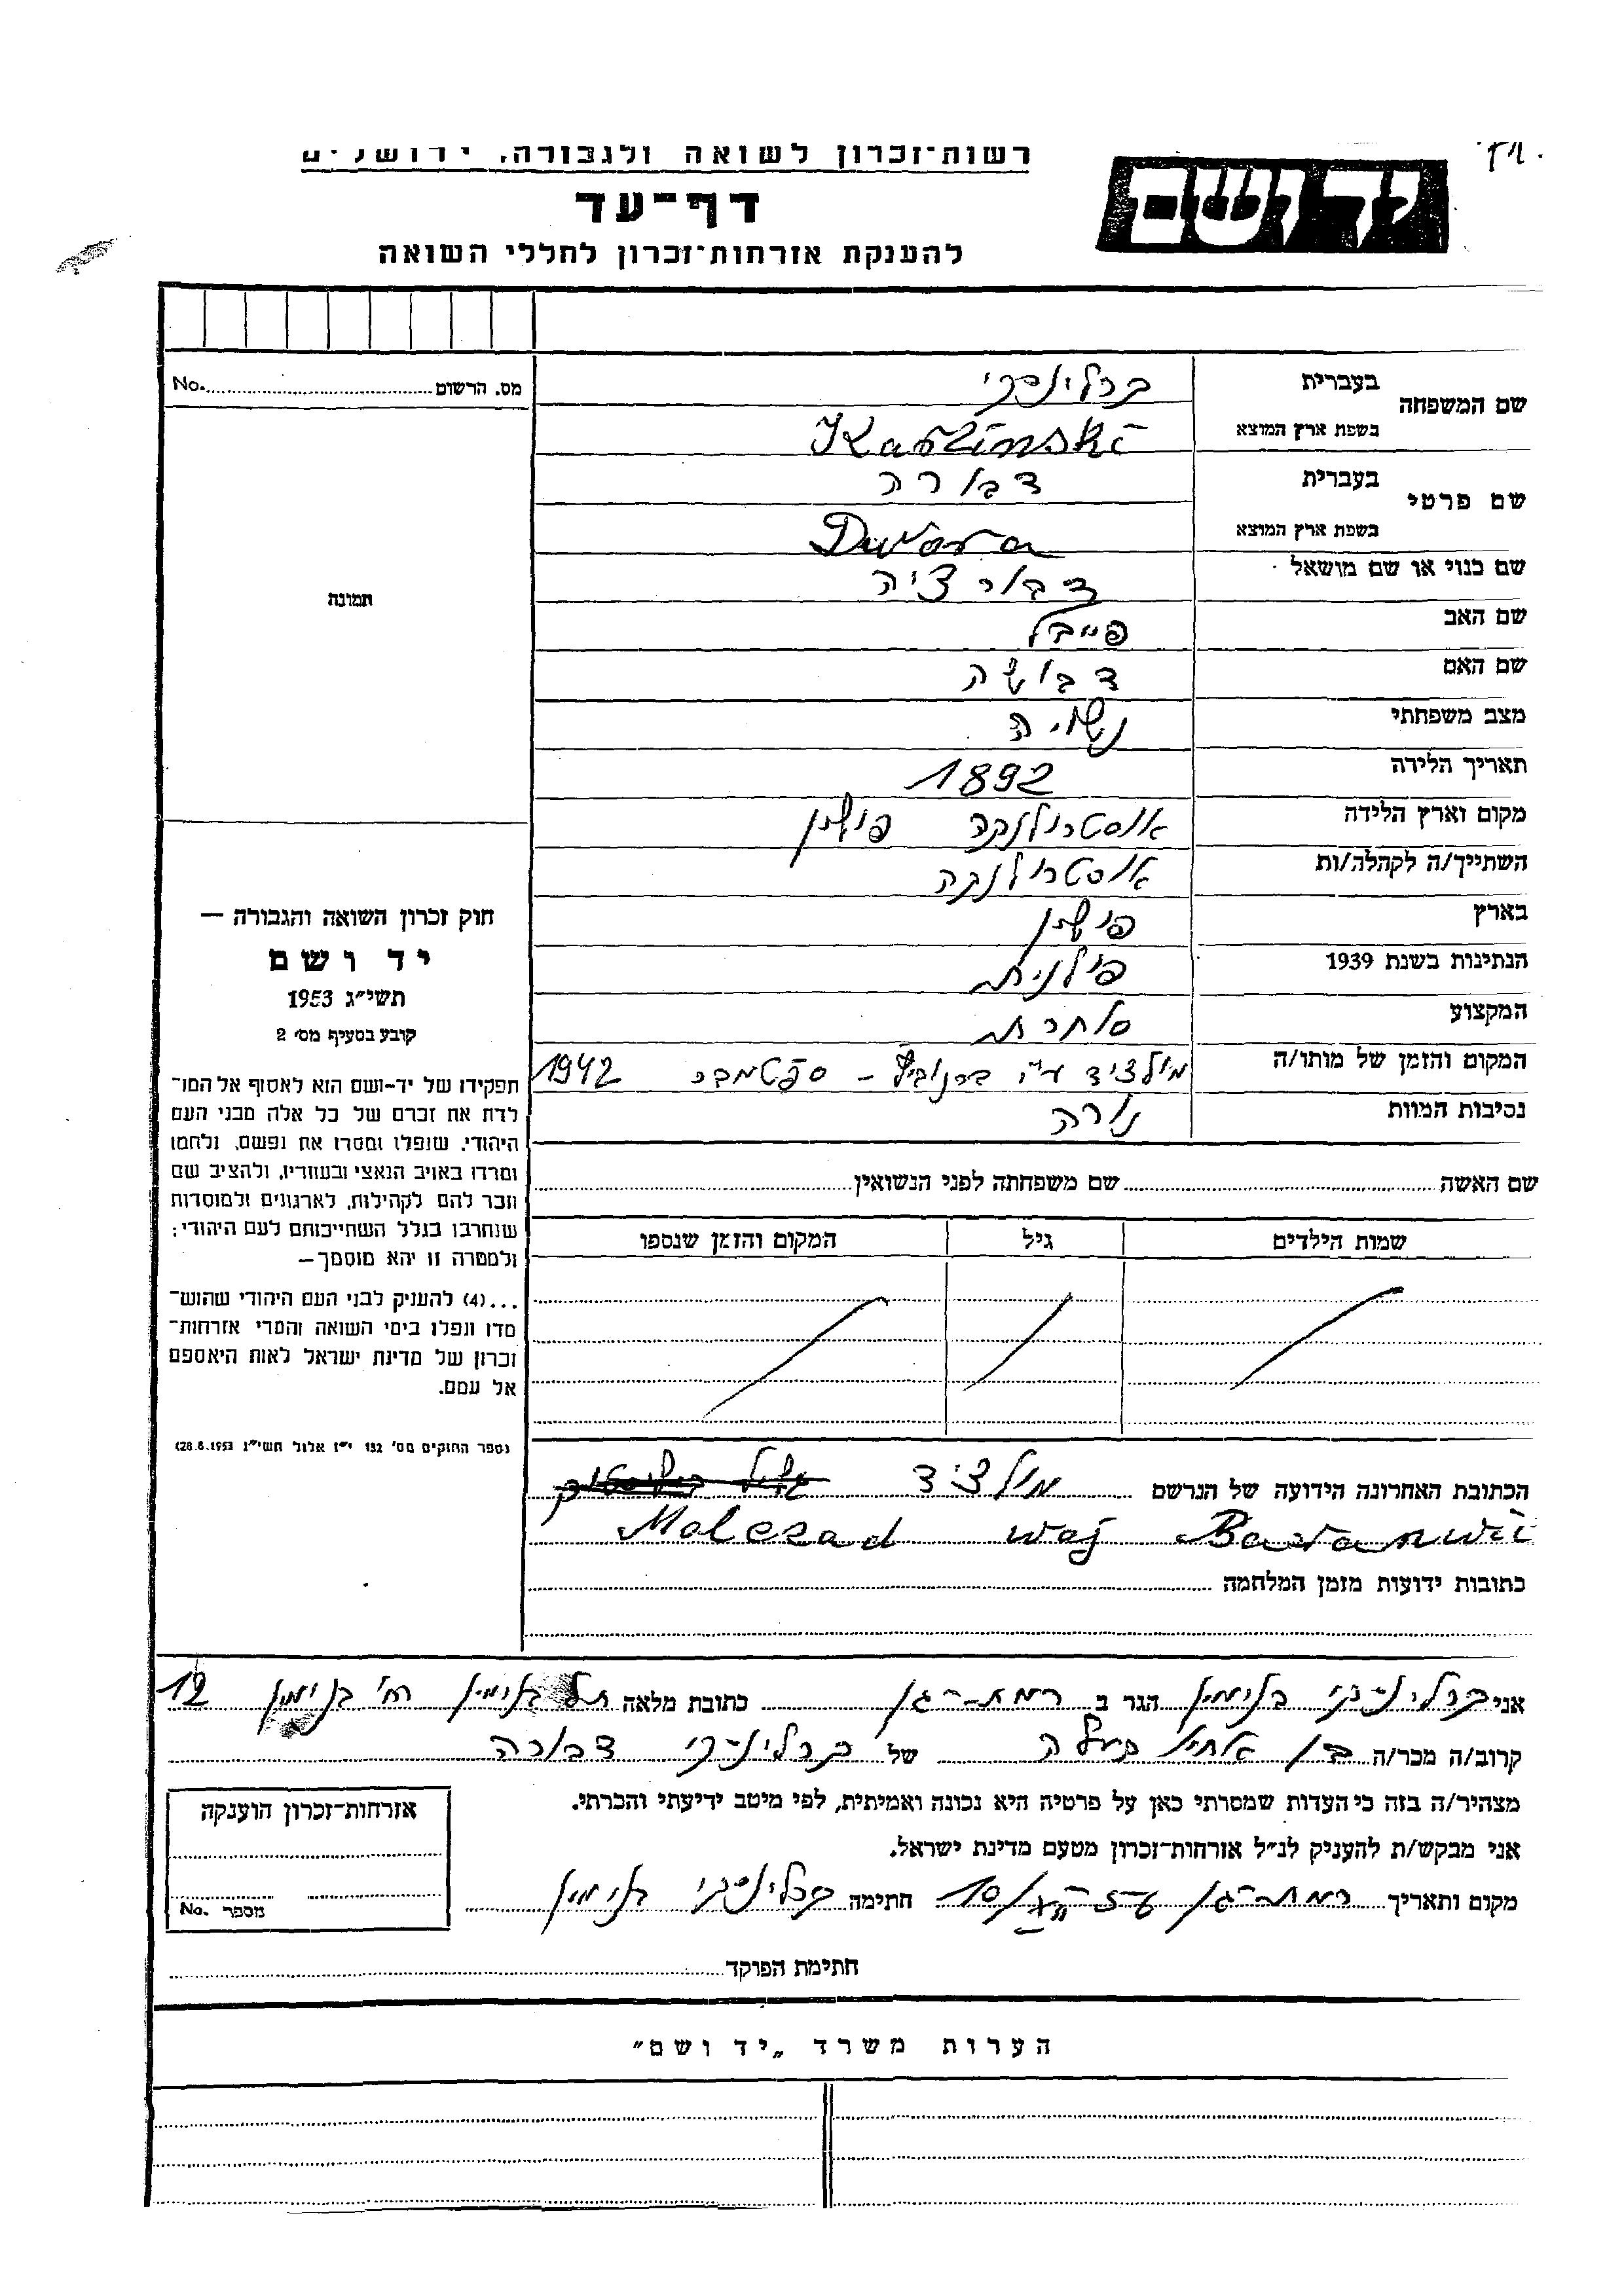 רשות־זכרון לשואה ולגבורה, ירושלים
יד ושם
דף־עד
להענקת אזרחות־זכרון לחללי השואה
מס. הרשום No.
תמונה
שם המשפחה בעברית קרלינסקי
בשפת ארץ המוצא Karlinski
שם פרטי בעברית דבורה
בשפת ארץ המוצא Dwora
שם כנוי או שם מושאל דבורציה
שם האב פייבל
שם האם דבושה
מצב משפחתי נשויה
תאריך הלידה 1892
מקום וארץ הלידה אוסטרולנקה פולין
השתייך/ה לקהלה/ות אוסטרולנקה
בארץ פולין
הנתינות בשנת 1939 פולנית
המקצוע סוחרת
המקום והזמן של מותו/ה מולצ'ד ע"י ברנוביץ – ספטמבר 1942
נסיבות המוות נורה
שם האשה שם משפחתה לפני הנשואין
שמות הילדים גיל המקום והזמן שנספו
חוק זכרון השואה והגבורה —
יד ושם
תשי״ג 1953
קובע בסעיף מס׳ 2
תפקידו של יד־ושם הוא לאסוף אל המו־
לדת את זכרם של כל אלה מבני העם
היהודי, שנפלו ומסרו את נפשם, נלחמו
ומרדו באויב הנאצי ובעוזריו, ולהציב שם
וזכר להם לקהילות, לארגונים ולמוסדות
שנחרבו בגלל השתייכותם לעם היהודי;
ולמטרה זו יהא מוסמך—
...(4) להעניק לבני העם היהודי שהוש־
מדו ונפלו בימי השואה והמרי אזרחות־
זכרון של מדינת ישראל לאות היאספם
אל עמם.
(ספר החוקים מס׳ 132 י״ז אלול תשי״ג 28.8.1953)
הכתובת האחרונה הידועה של הנרשם מולצ'ד
Molczad woj Baranwii
כתובות ידועות מזמן המלחמה
אני קרלינסקי בנימין הגר ב רמת-גן כתובת מלאה תל בנימין רח' בנימין 12
קרוב/ה מכר/ה בן אחיו בעלה של קרלינסקי דבורה
מצהיר/ה בזה כי העדות שמסרתי כאן על פרטיה היא נכונה ואמיתית, לפי מיטב ידיעתי והכרתי.
אני מבקש/ת להעניק לנ״ל אזרחות־זכרון מטעם מדינת ישראל.
מקום ותאריך רמת-גן חתימה קרלינסקי בנימין
אזרחות־זכרון הוענקה
מספר No.
חתימת הפוקד
הערות משרד „יד ושם״